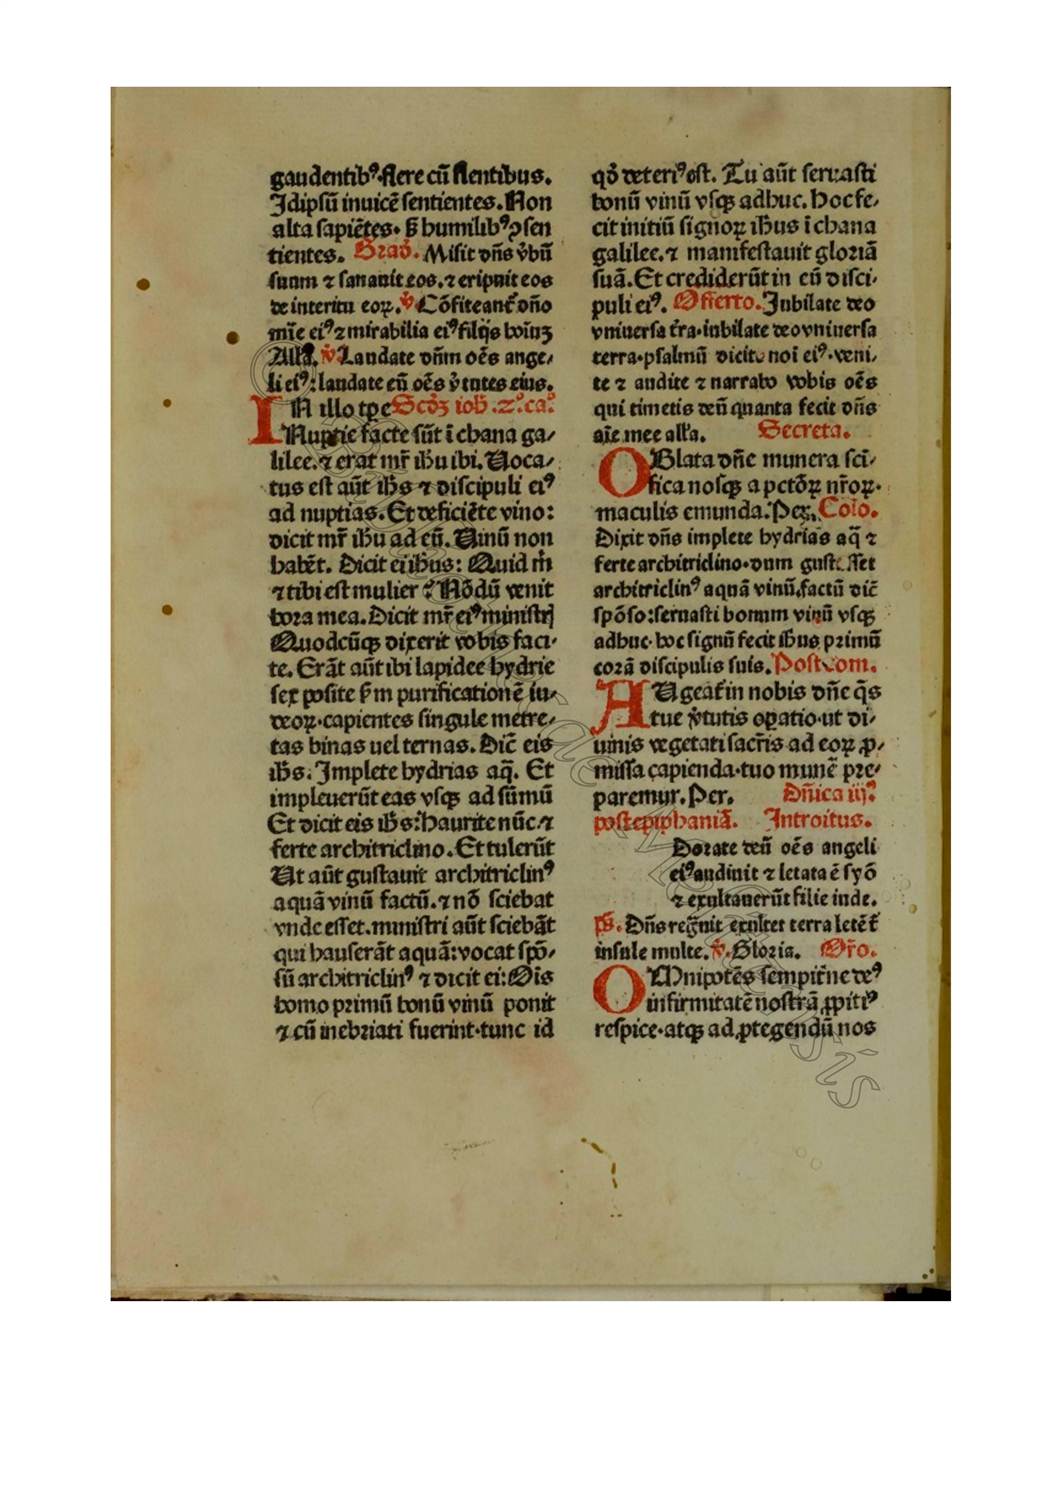 gaudentibꝰ·flere cū flentibus.
Idipsū inuicē sentientes. Non
alta sapiētes· ß humilibꝰ ꝯsen
tientes. Graď. Misit dn̄s v̓bū
suum ⁊ sanauit eos. ⁊ eripuit eos
de interitu eoꝝ. ℣ Cōfiteant᷑ dn̄o
mīe eiꝰ ⁊ mirabilia eiꝰ filijs hoīnꝫ
Alla. ℣ Laudate dn̄m oēs ange⸗
li eiꝰ: laudate eū oēs v̓tutes eius.
IN illo tꝑe Scḋꝫ ioh̄ .2.º ca.º
Nuptie facte sūt ī chana ga⸗
lilee. ⁊ erat mr̄ ih̄u ibi. Uoca⸗
tus est aūt ih̄s ⁊ discipuli eiꝰ
ad nuptias. Et deficiēte vino:
dicit mr̄ ih̄u ad eū. Uinū non
habēt. Dicit ei ih̄us: Quid m̄
⁊ tibi est mulier? Nōdū venit
hora mea. Dicit mr̄ eiꝰ ministrj
Quodcūqꝫ dixerit vobis faci⸗
te. Erāt aūt ibi lapidee hydrie
sex posite ẜm purificationē iu⸗
deoꝝ·capientes singule metre⸗
tas binas uel ternas. Dic̄ eis
ih̄s. Implete hydrias aq̄. Et
impleuerūt eas vsqꝫ ad sūmū
Et dicit eis ih̄s: haurite nūc. ⁊
ferte architriclino. Et tulerūt
Ut aūt gustauit architriclinꝰ
aquā vinū factū. ⁊ nō sciebat
vnde esset. ministri aūt sciebāt
qui hauserāt aquā: vocat spō⸗
sū architriclinꝰ ⁊ dicit ei: Oīs
homo primū bonū vinū ponit
⁊ cū inebriati fuerint·tunc id
qḋ deteriꝰ est. Tu aūt seruasti
bonū vinū vsqꝫ adhuc. Hoc fe⸗
cit initiū signoꝝ ih̄us ī chana
galilee. ⁊ manifestauit gloriā
suā. Et crediderūt in eū disci⸗
puli eiꝰ. Offerto. Iubilate deo
vniuersa t̄ra·iubilate deo vniuersa
terra·psalmū dicite noī eiꝰ·veni⸗
te ⁊ audite ⁊ narrabo vobis oēs
qui timetis deū quanta fecit dn̄s
aīe mee all̄a. Secreta.
OBlata dn̄e munera scī⸗
fica nosqꝫ a pctōꝝ nr̄oꝝ·
maculis emunda. Per. Colo.
Dixit dn̄s implete hydrias aq̄ ⁊
ferte architriclino·dum gustasset
architriclinꝰ aquā vinū factū dic̄
spōso: seruasti bonum vinū vsqꝫ
adhuc·hoc signū fecit ih̄us primū
corā discipulis suis. Postcom.
AUgeat᷑ in nobis dn̄e q̄s
tue v̓tutis oꝑatio·ut di⸗
uinis vegetati sacr̄is ad eoꝝ ꝓ⸗
missa capienda·tuo munē pre⸗
paremur. Per. Dn̄ica iij.ª
post epiphaniā. Introitus.
Dorate deū oēs angeli
eiꝰ audiuit ⁊ letata ē syō
⁊ exultauerūt filie inde.
p̄s. Dn̄s regͣuit exultet terra letēt᷑
insule multe. ℣. Gloria. Or̄o.
OMnipotēs sempit̄ne deꝰ
infirmitatē nostrā ꝓpitiꝰ
respice·atqꝫ ad ꝓtegendū nos